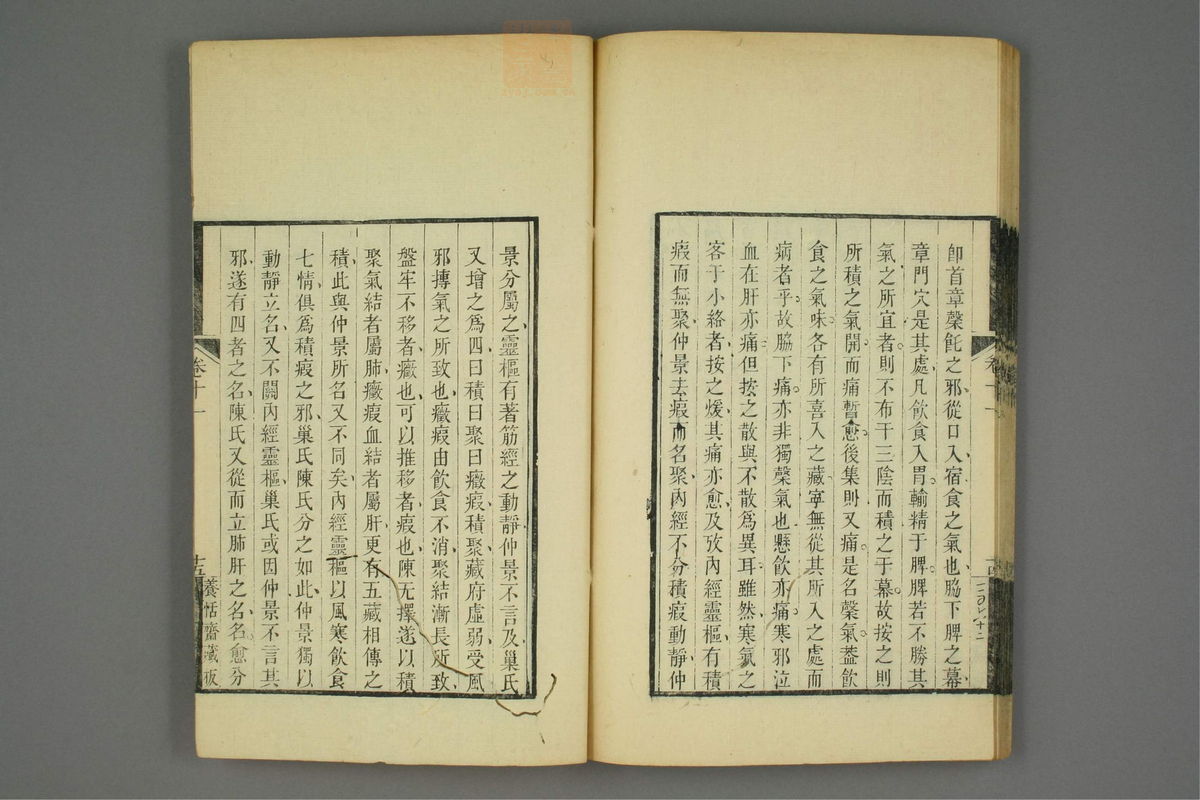 卽首章䅽飥之邪從口入宿食之氣也脇下脾之幕
章門穴是其處凡飮食入胃輸精于脾脾若不勝其
氣之所宜者則不布干三陰而積之于幕故按之則
所積之氣開而痛暫愈後集則又痛是名䅽氣葢飮
食之氣味各有所喜入之藏寧無從其所入之處而
病者乎故脇下痛亦非獨䅽氣也懸飮亦痛寒邪泣
血在肝亦痛但按之散與不散爲異耳雖然寒氣之
客于小絡者按之煖其痛亦愈及攷內經靈樞有積
瘕而無聚仲景去瘕而名聚內經不分積瘕動靜仲
卷十一
十四
景分屬之靈樞有著筋經之動靜仲景不言及巢氏
又增之爲四曰積曰聚曰癥瘕積聚藏府虛弱受風
邪搏氣之所致也癥瘕由飮食不消聚結漸長所致
盤牢不移者癥也可以推移者瘕也陳无擇遂以積
聚氣結者屬肺癥瘕血結者屬肝更有五藏相傳之
積此與仲景所名又不同矣內經靈樞以風寒飮食
七情俱爲積瘕之邪巢氏陳氏分之如此仲景獨以
動靜立名又不闗內經靈樞巢氏或因仲景不言其
邪遂有四者之名陳氏又從而立肺肝之名名愈分
卷十一
十五
養恬齋藏板